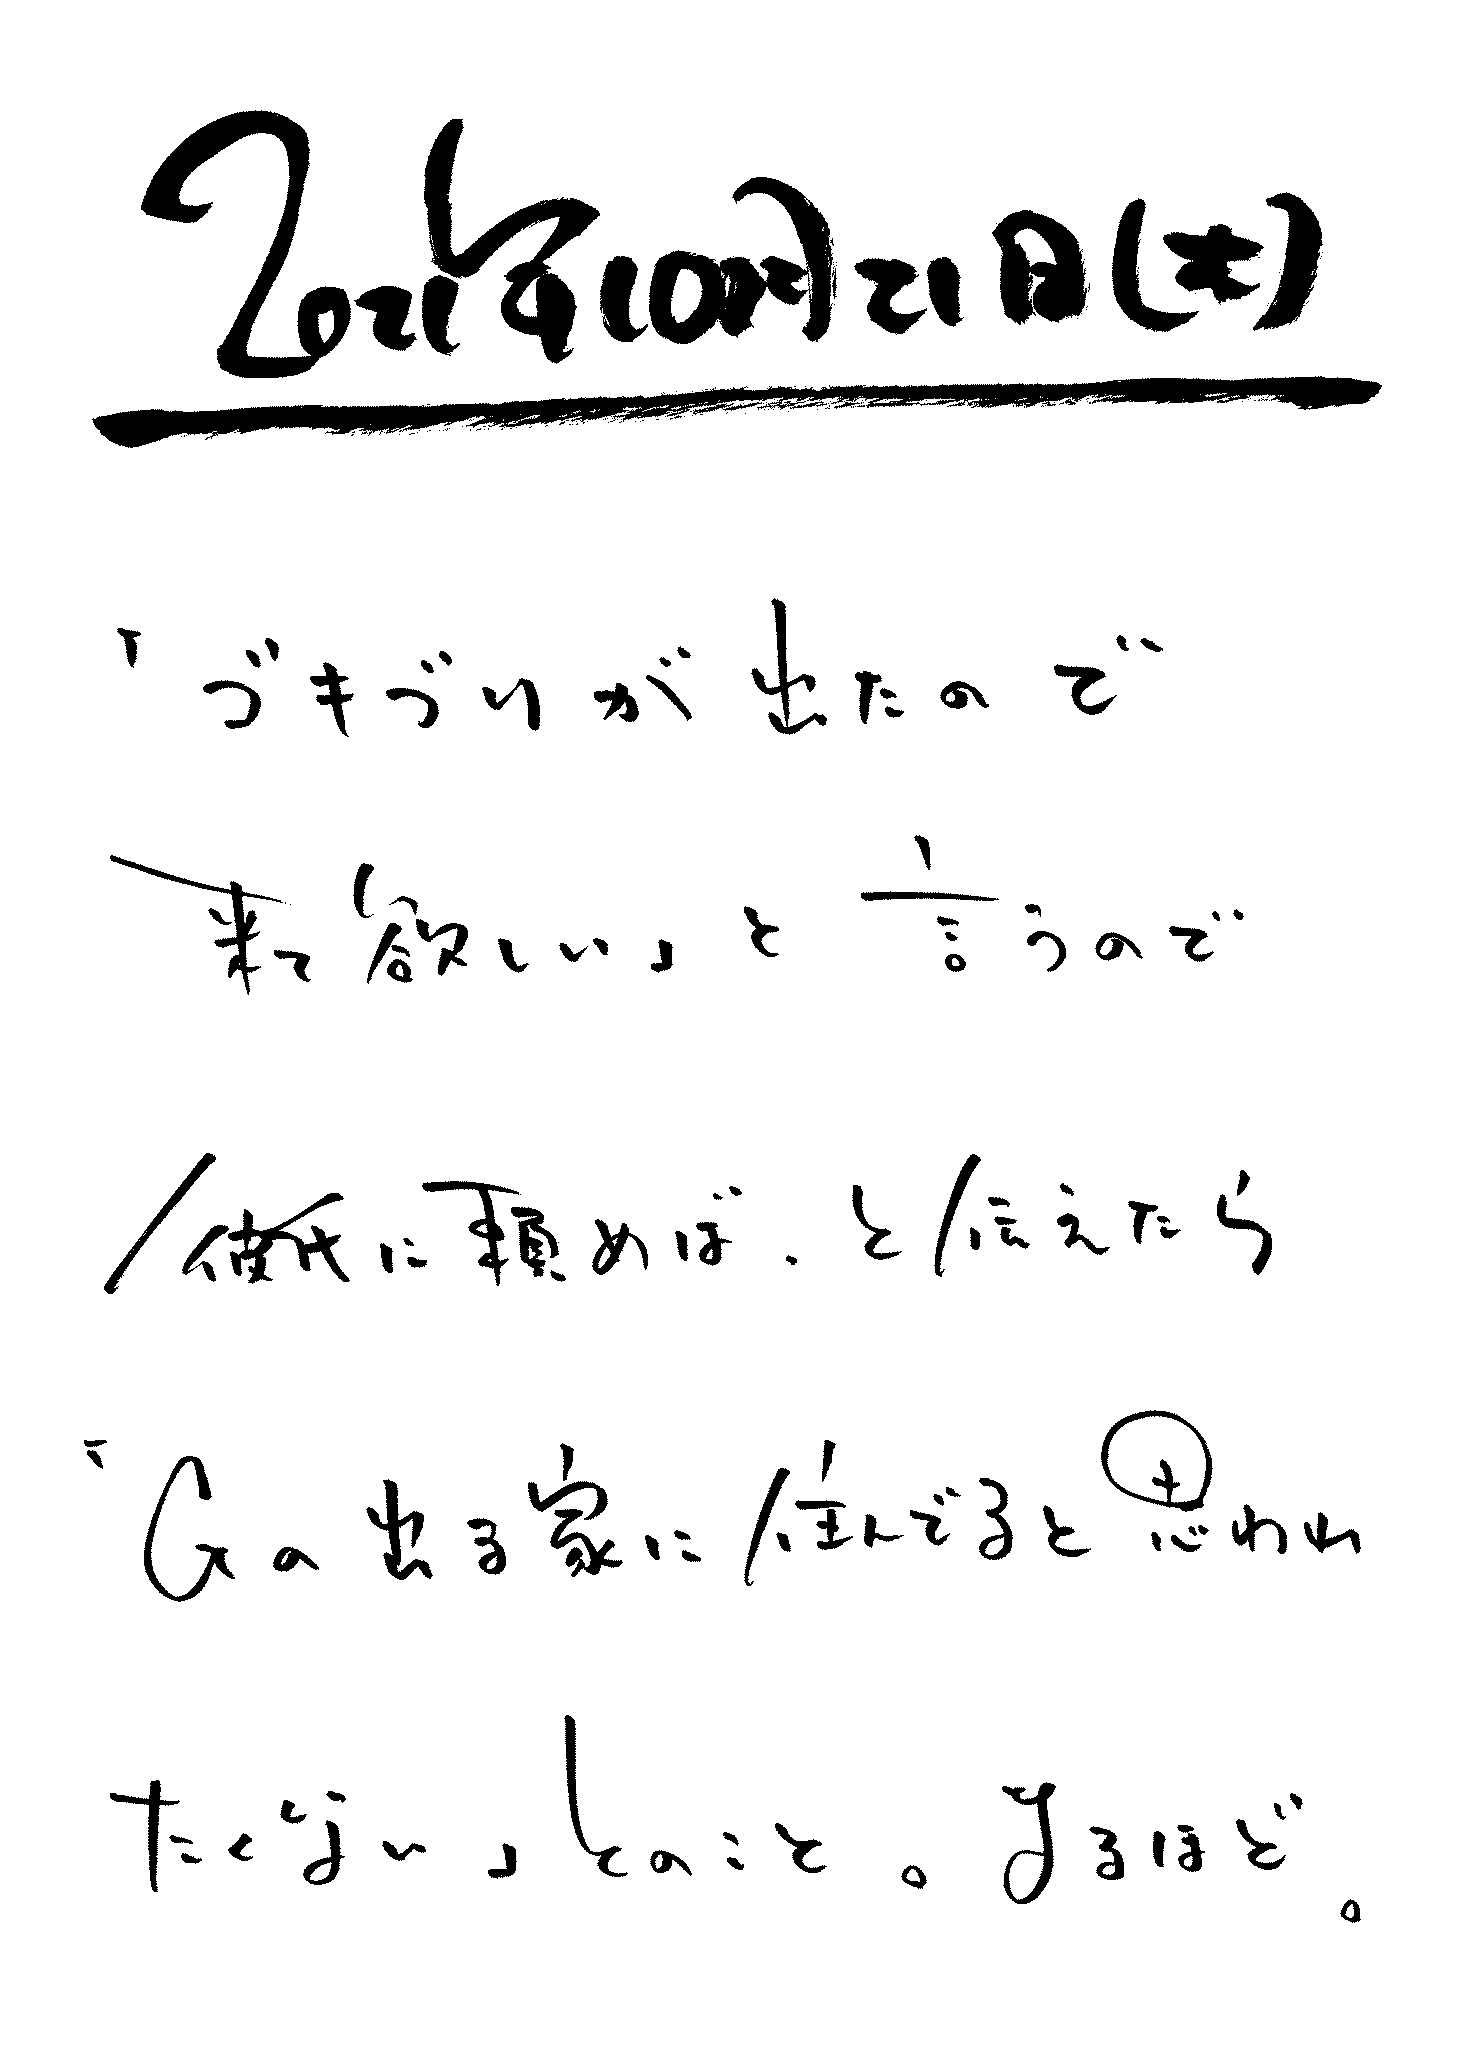 2021年10月21日(木)
「ゴキブリが出たので
来て欲しい」と言うので
彼氏に頼めば、と伝えたら
「Gの出る家に住んでると思われ
たくない」とのこと。なるほど。